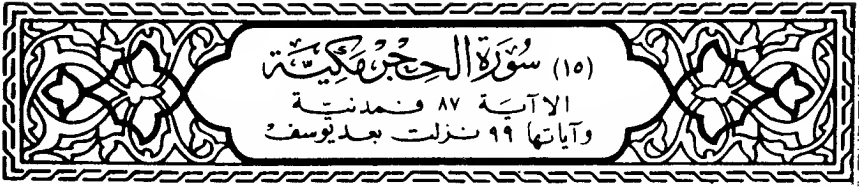 (١٥) سُورَةُ الحِجْرِ مَكِّيَّة
الا آيَة ٨٧ فمدنيَّة
وآياتها ٩٩ نزلت بعد يوسف